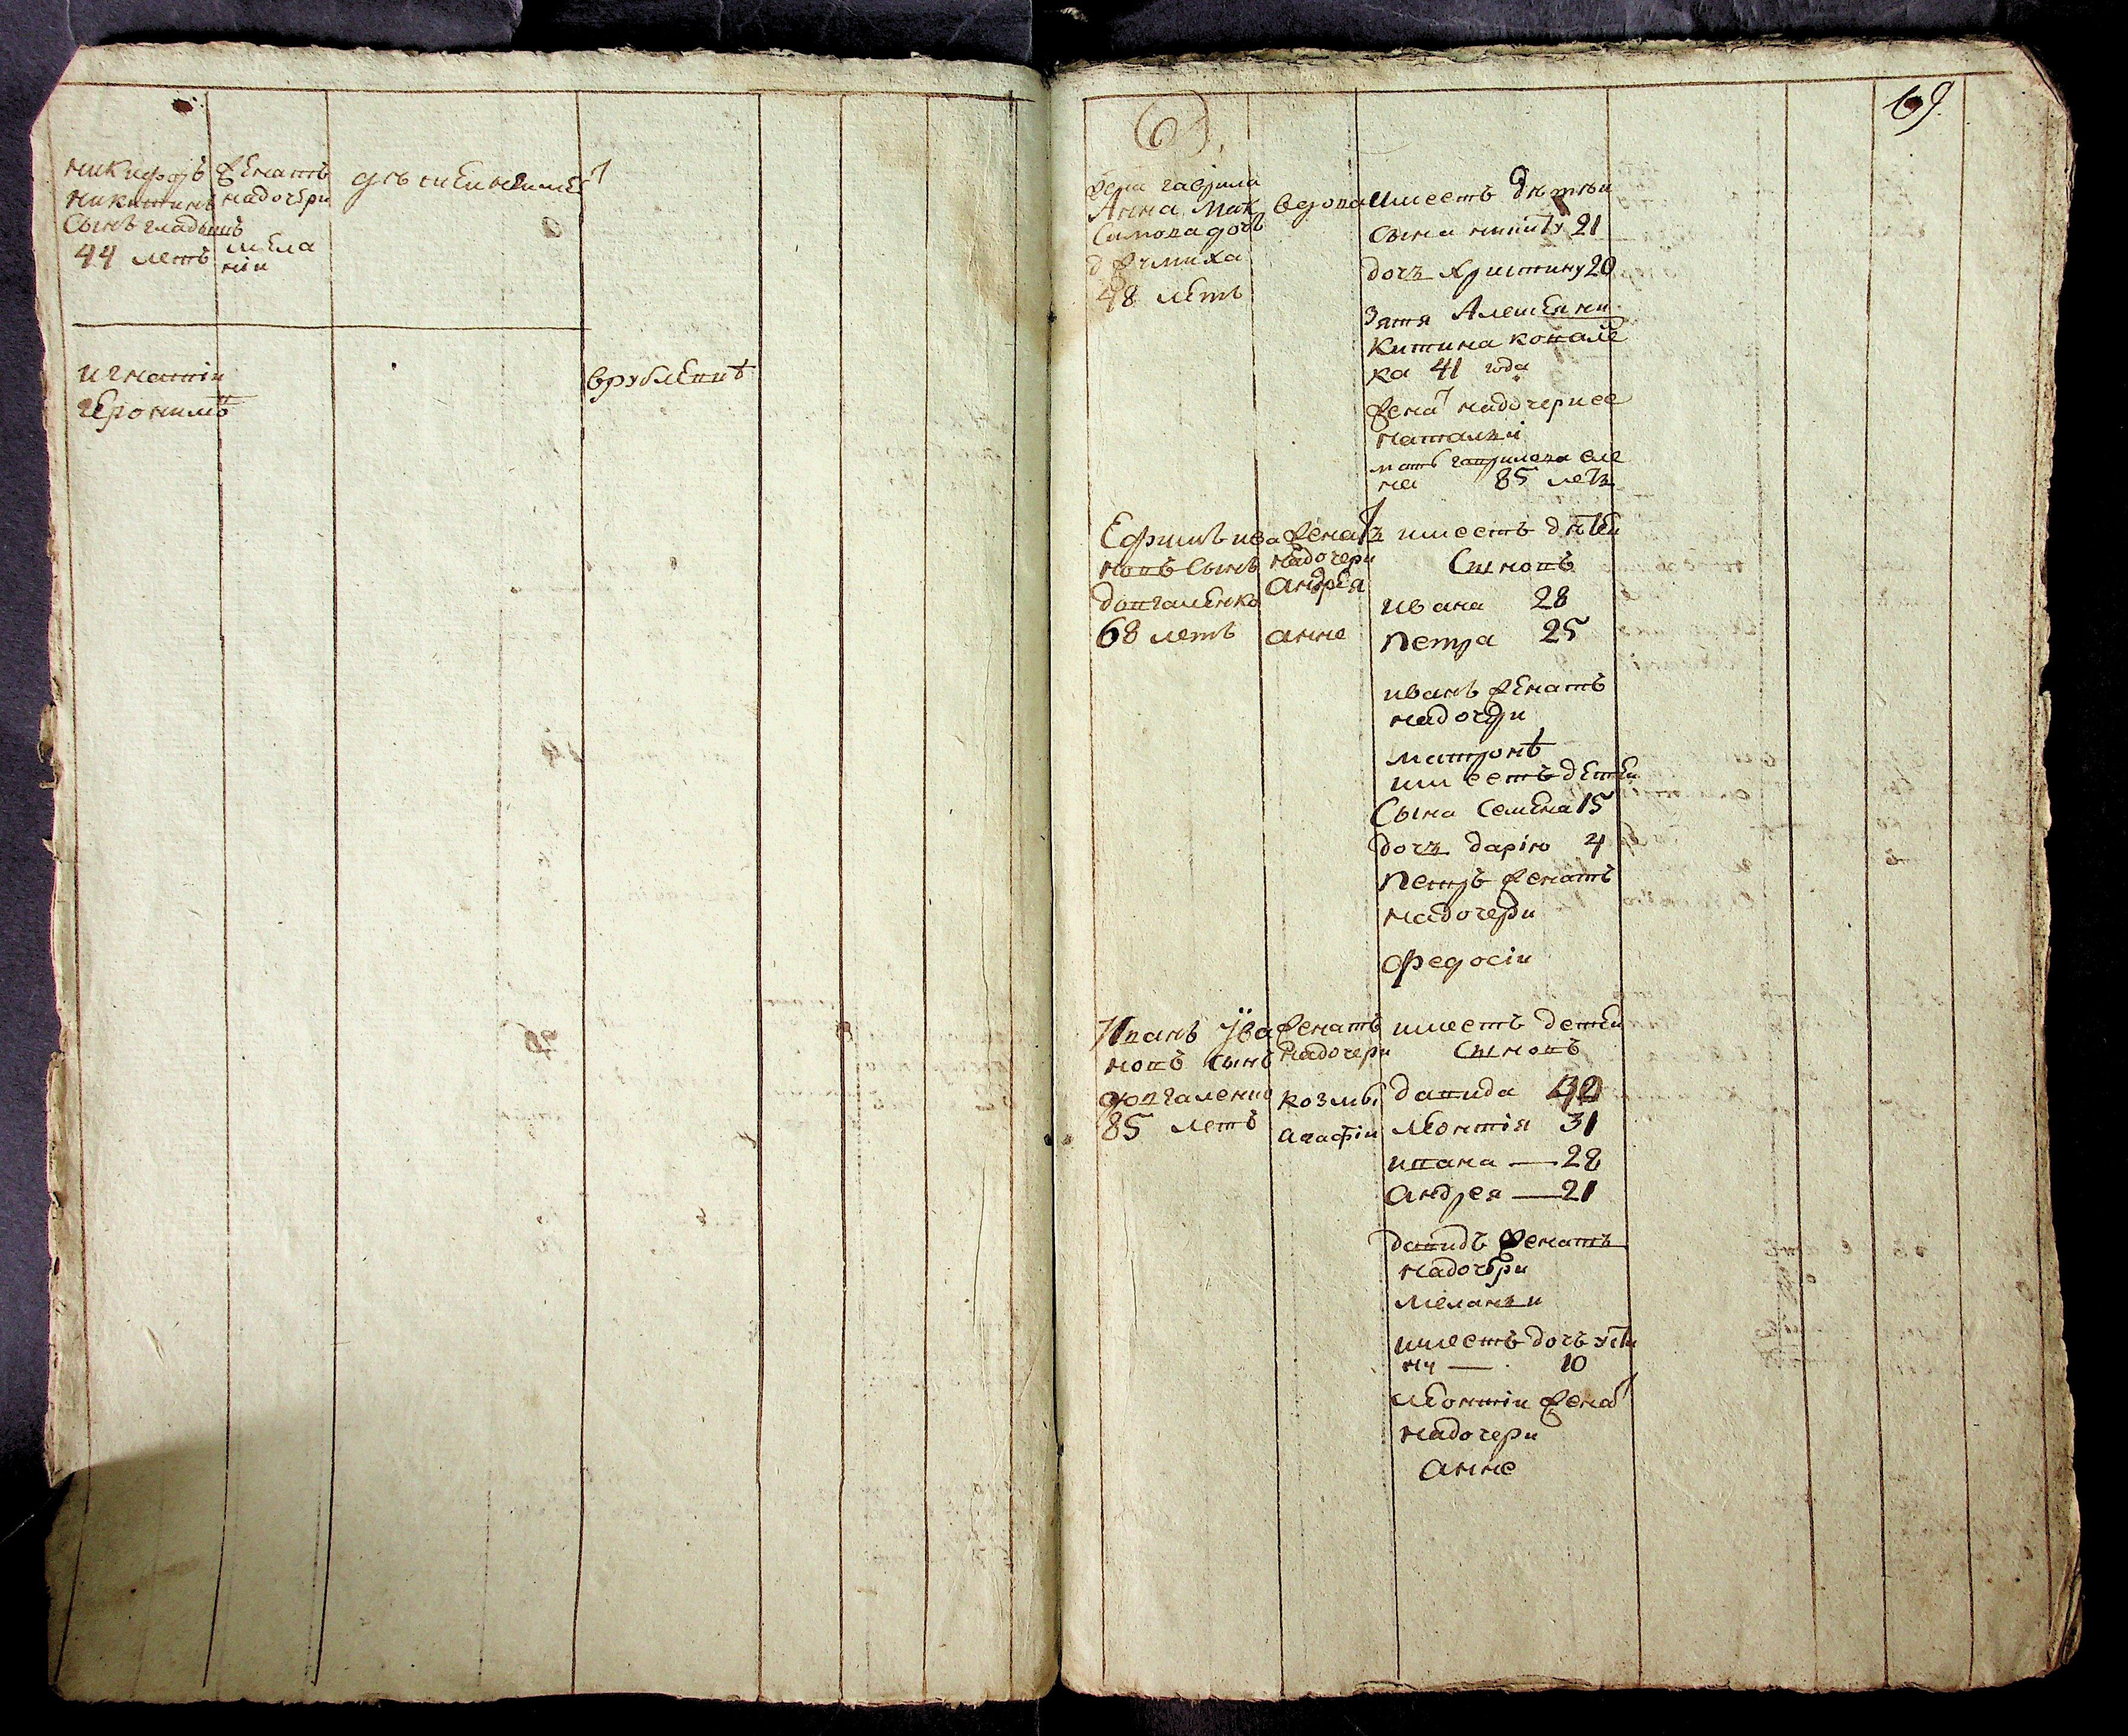 никифоръ
никитинъ
сынъ гладышъ
44 летъ
женатъ
надочери
мела
ніи
детей неимеет
игнатіи
іеронимъ
врублевцѣ
69.
жена гаврила
Анна Мак
симова дочъ
48 летъ
вдова
имеетъ дѣтеи
сына никиту 21
дочъ христину 20
зятя Алешеи ни
китина ковале
ка 41 года
женат надочери ее
наталъи
мать гаврилова еле
на 85 летъ
Ефимъ ива
новъ сынъ
довгаленко
68 летъ
женатъ
надочери
андрея
анне
имеетъ дѣтеи
сыновъ
ивана 28
петра 25
иванъ женатъ
надочери
матронѣ
имеетъ детеи
сына семена 15
дочъ дарію 4
петръ женатъ
надочери
федосіи
Иванъ ива
новъ сынъ
довгаленко
85 летъ
женатъ
надочери
козмы
агафіи
имеетъ детеи
сыновъ
давида
леонтія 31
ивана — 28
андрея — 21
давидъ женатъ
надочери
меланъи
имеетъ дочъ усти
ну — 10
леонтіи женат
надочери
анне